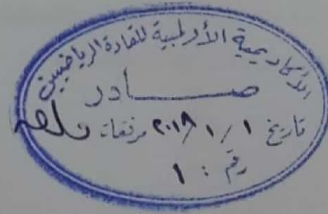 الأكاديمية الأولمبية للقادة الرياضيين
صادر
تاريخ ١ / ١ / ٢٠١٨ مرفقات
رقم : ١